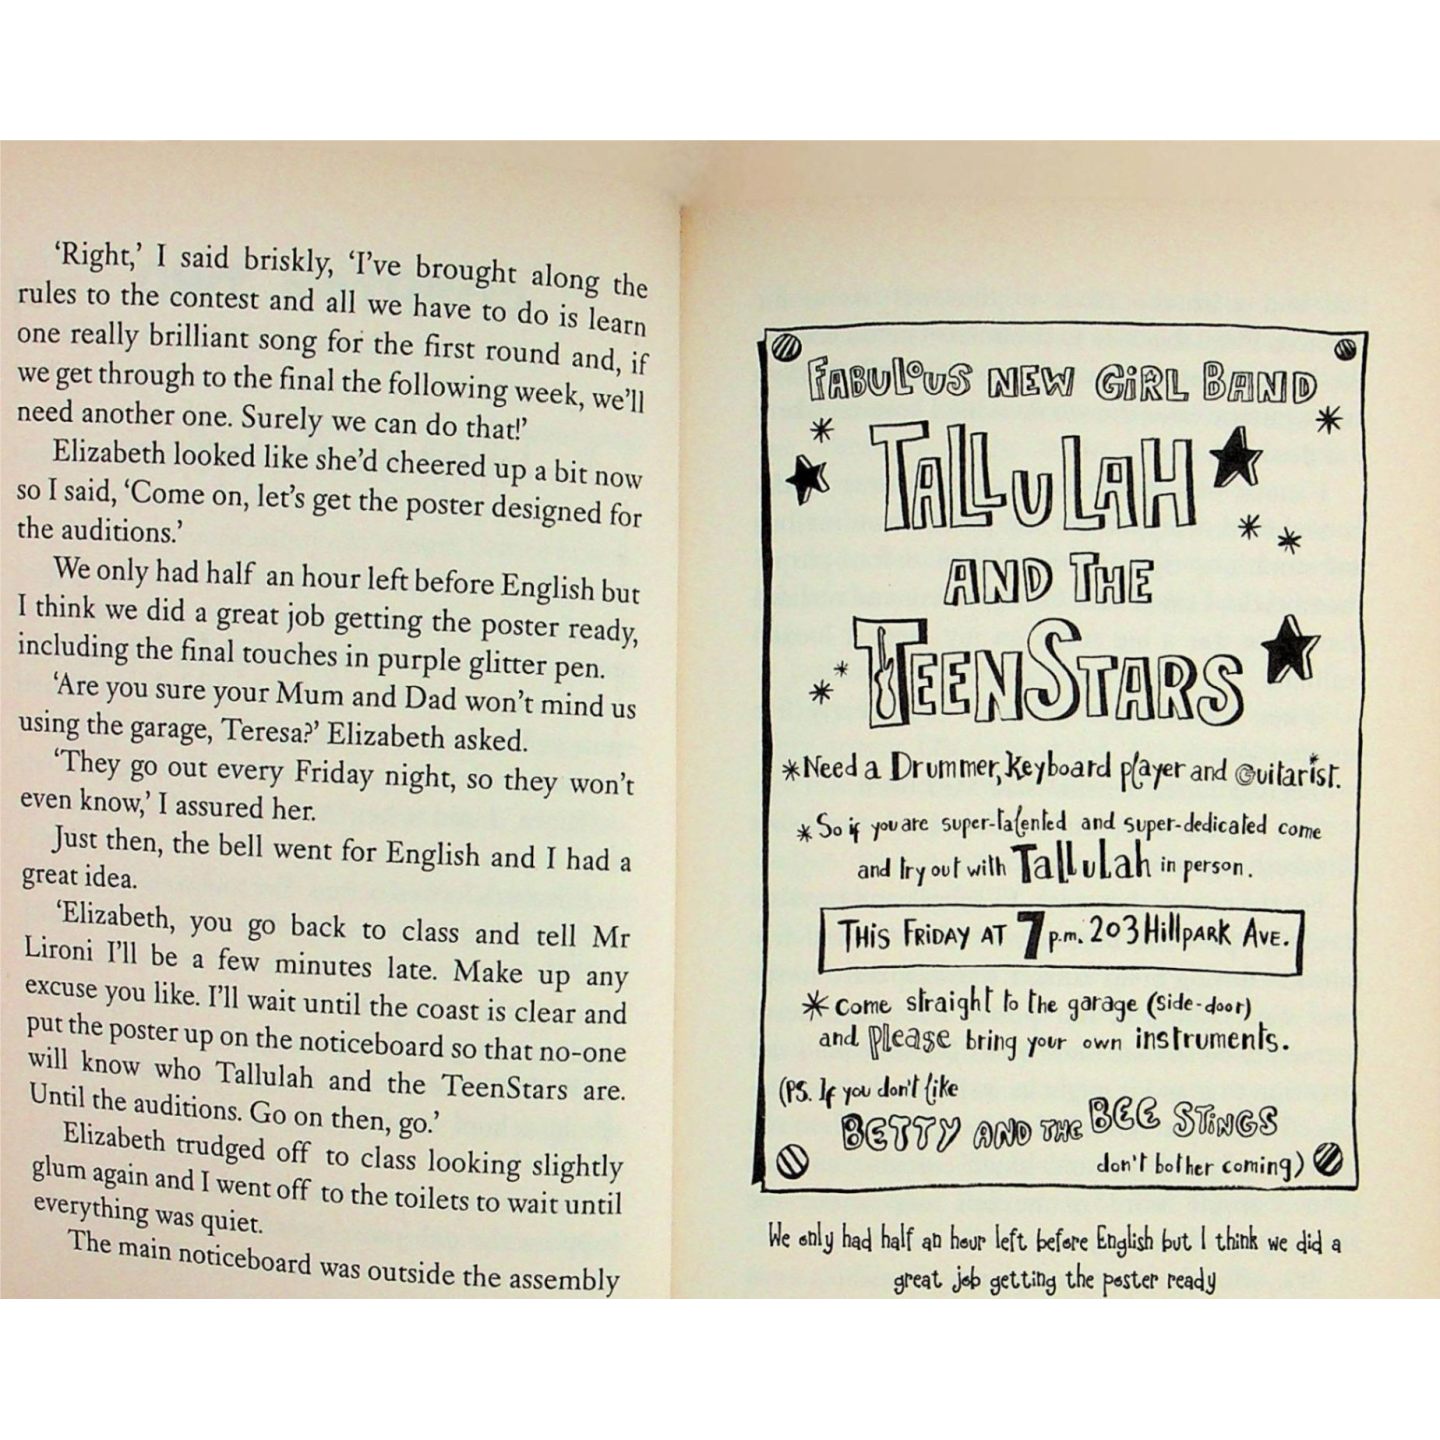 ‘Right,’ I said briskly, ‘I’ve brought along the
rules to the contest and all we have to do is learn
one really brilliant song for the first round and, if
we get through to the final the following week, we’ll
need another one. Surely we can do that!’
Elizabeth looked like she’d cheered up a bit now
so I said, ‘Come on, let’s get the poster designed for
the auditions.’
We only had half an hour left before English but
I think we did a great job getting the poster ready,
including the final touches in purple glitter pen.
‘Are you sure your Mum and Dad won’t mind us
using the garage, Teresa?’ Elizabeth asked.
‘They go out every Friday night, so they won’t
even know,’ I assured her.
Just then, the bell went for English and I had a
great idea.
‘Elizabeth, you go back to class and tell Mr
Lironi I’ll be a few minutes late. Make up any
excuse you like. I’ll wait until the coast is clear and
put the poster up on the noticeboard so that no-one
will know who Tallulah and the TeenStars are.
Until the auditions. Go on then, go.’
Elizabeth trudged off to class looking slightly
glum again and I went off to the toilets to wait until
everything was quiet.
The main noticeboard was outside the assembly
FABULOUS NEW GiRL BAND
TALLULAH
AND THE
TEENSTARS
*Need a Drummer, Keyboard player and Guitarist.
*So if you are super-talented and super-dedicated come
and try out with Tallulah in person.
THIS FRIDAY AT 7 p.m. 203 Hillpark Ave.
*Come straight to the garage (side-door)
and please bring your own instruments.
(PS. If you don't like
BETTY AND THE BEE STiNGS
don't bother coming)
We only had half an hour left before English but I think we did a
great job getting the poster ready